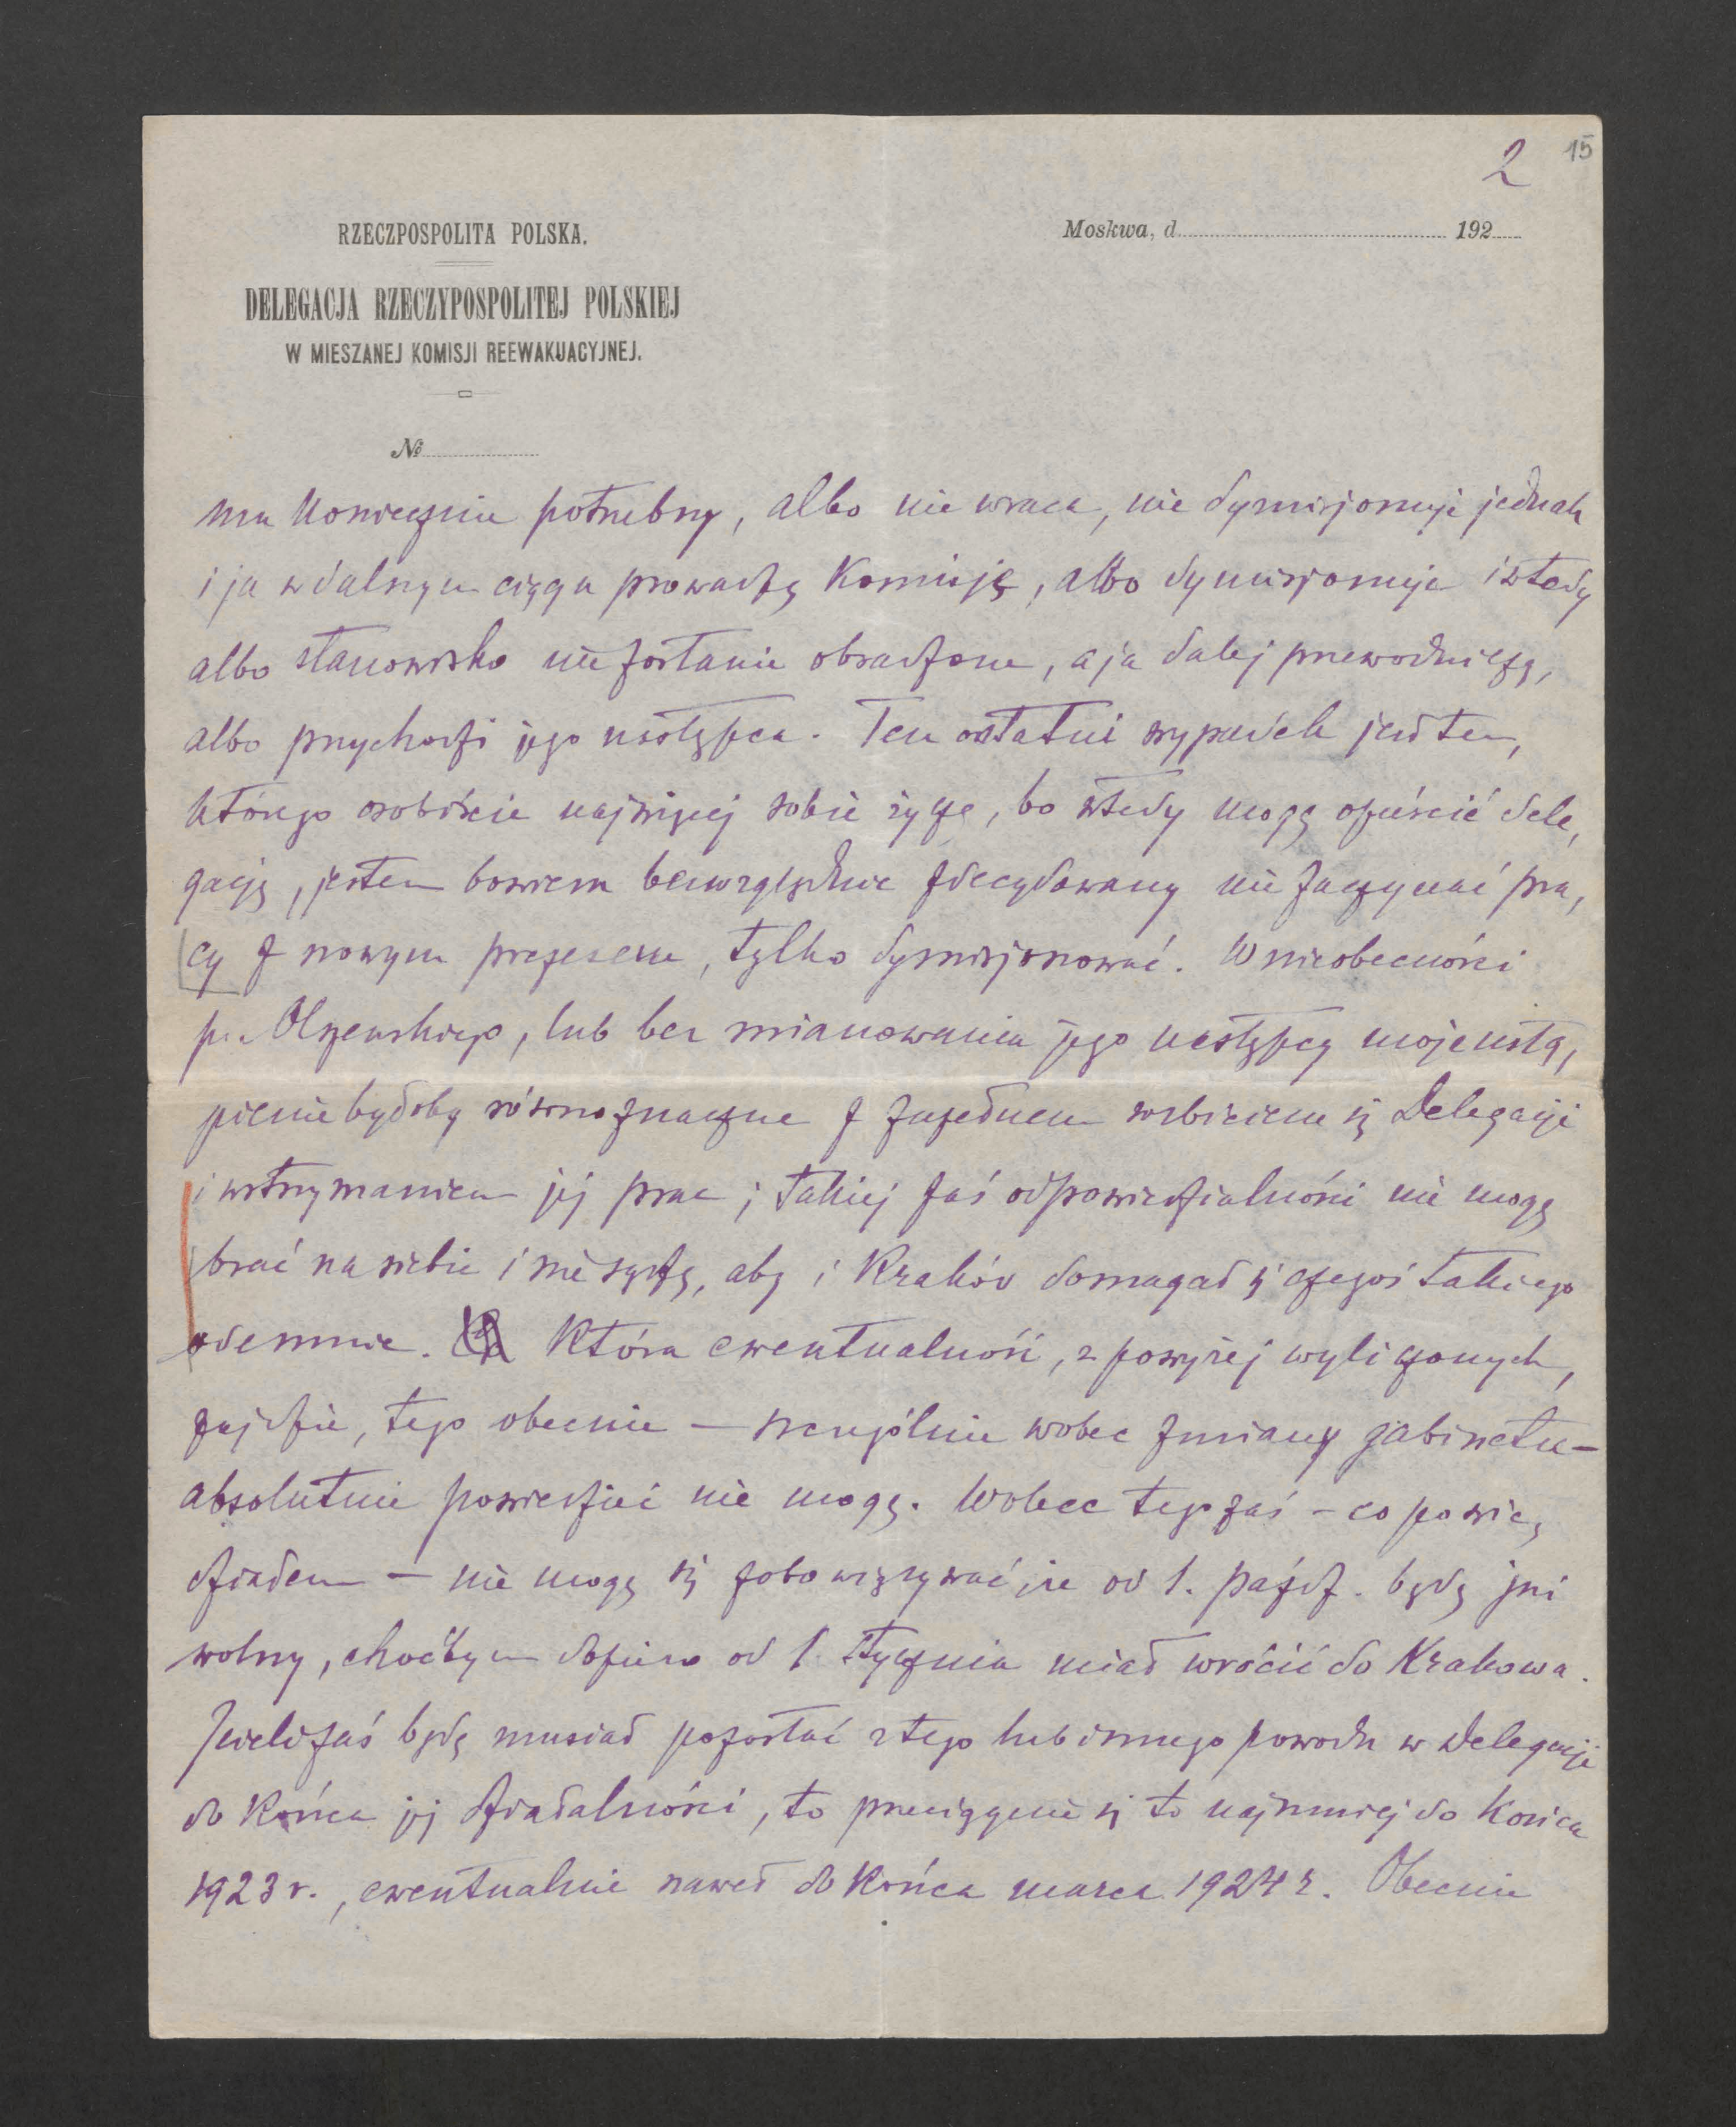 2 15
RZECZPOSPOLITA POLSKA.
Moskwa, d. 192
DELEGACJA RZECZYPOSPOLITEJ POLSKIEJ
W MIESZANEJ KOMISJI REEWAKUACYJNEJ.
№
mu koniecznie potrzebny, albo nie wraca, nie dymisjonuje jednak
i ja w dalszym ciągu prowadzę Komisję, albo dymisjonuje i wtedy
albo stanowisko nie zostanie obsadzone, a ja dalej przewodniczę,
albo przychodzi jego następca. Ten ostatni wypadek jest tem,
którego osobiście najwięcej sobie życzę, bo wtedy mogę opuścić dele,
gację, jestem bowiem bezwzględnie zdecydowany nie zaczynać pra,
cy z nowym prezesem, tylko dymisjonować. W nieobecności
p. Olszewskiego, lub bez mianowania jego następcy moje ustą,
pienie byłoby równoznaczne z zupełnem rozbiciem się Delegacji
i wstrzymaniem jej prac; takiej zaś odpowiedzialności nie mogę
brać na siebie i nie sądzę, aby i Kraków domagał się czegoś takiego
odemnie. Która ewentualność, z powyżej wyliczonych,
zajdzie, tego obecnie — szczególnie wobec zmiany gabinetu —
absolutnie powiedzieć nie mogę. Wobec tego zaś – co powie,
działem — nie mogę się zobowiązywać, że od 1. paźdz. będę już
wolny, choćbym dopiero od 1. stycznia miał wrócić do Krakowa.
Jeżeli zaś będę musiał pozostać z tego lub innego powodu w Delegacji
do końca jej działalności, to przeciągnie się to najmniej do końca
1923 r., ewentualnie nawet do końca marca 1924 r. Obecnie